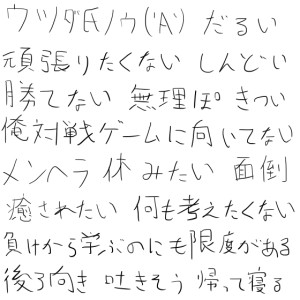 ウツダ氏ノウ('A') だるい
頑張りたくない しんどい
勝てない 無理ぽ きつい
俺対戦ゲームに向いてない
メンヘラ 休みたい 面倒
癒されたい 何も考えたくない
負けから学ぶのにも限度がある
後ろ向き 吐きそう 帰って寝る